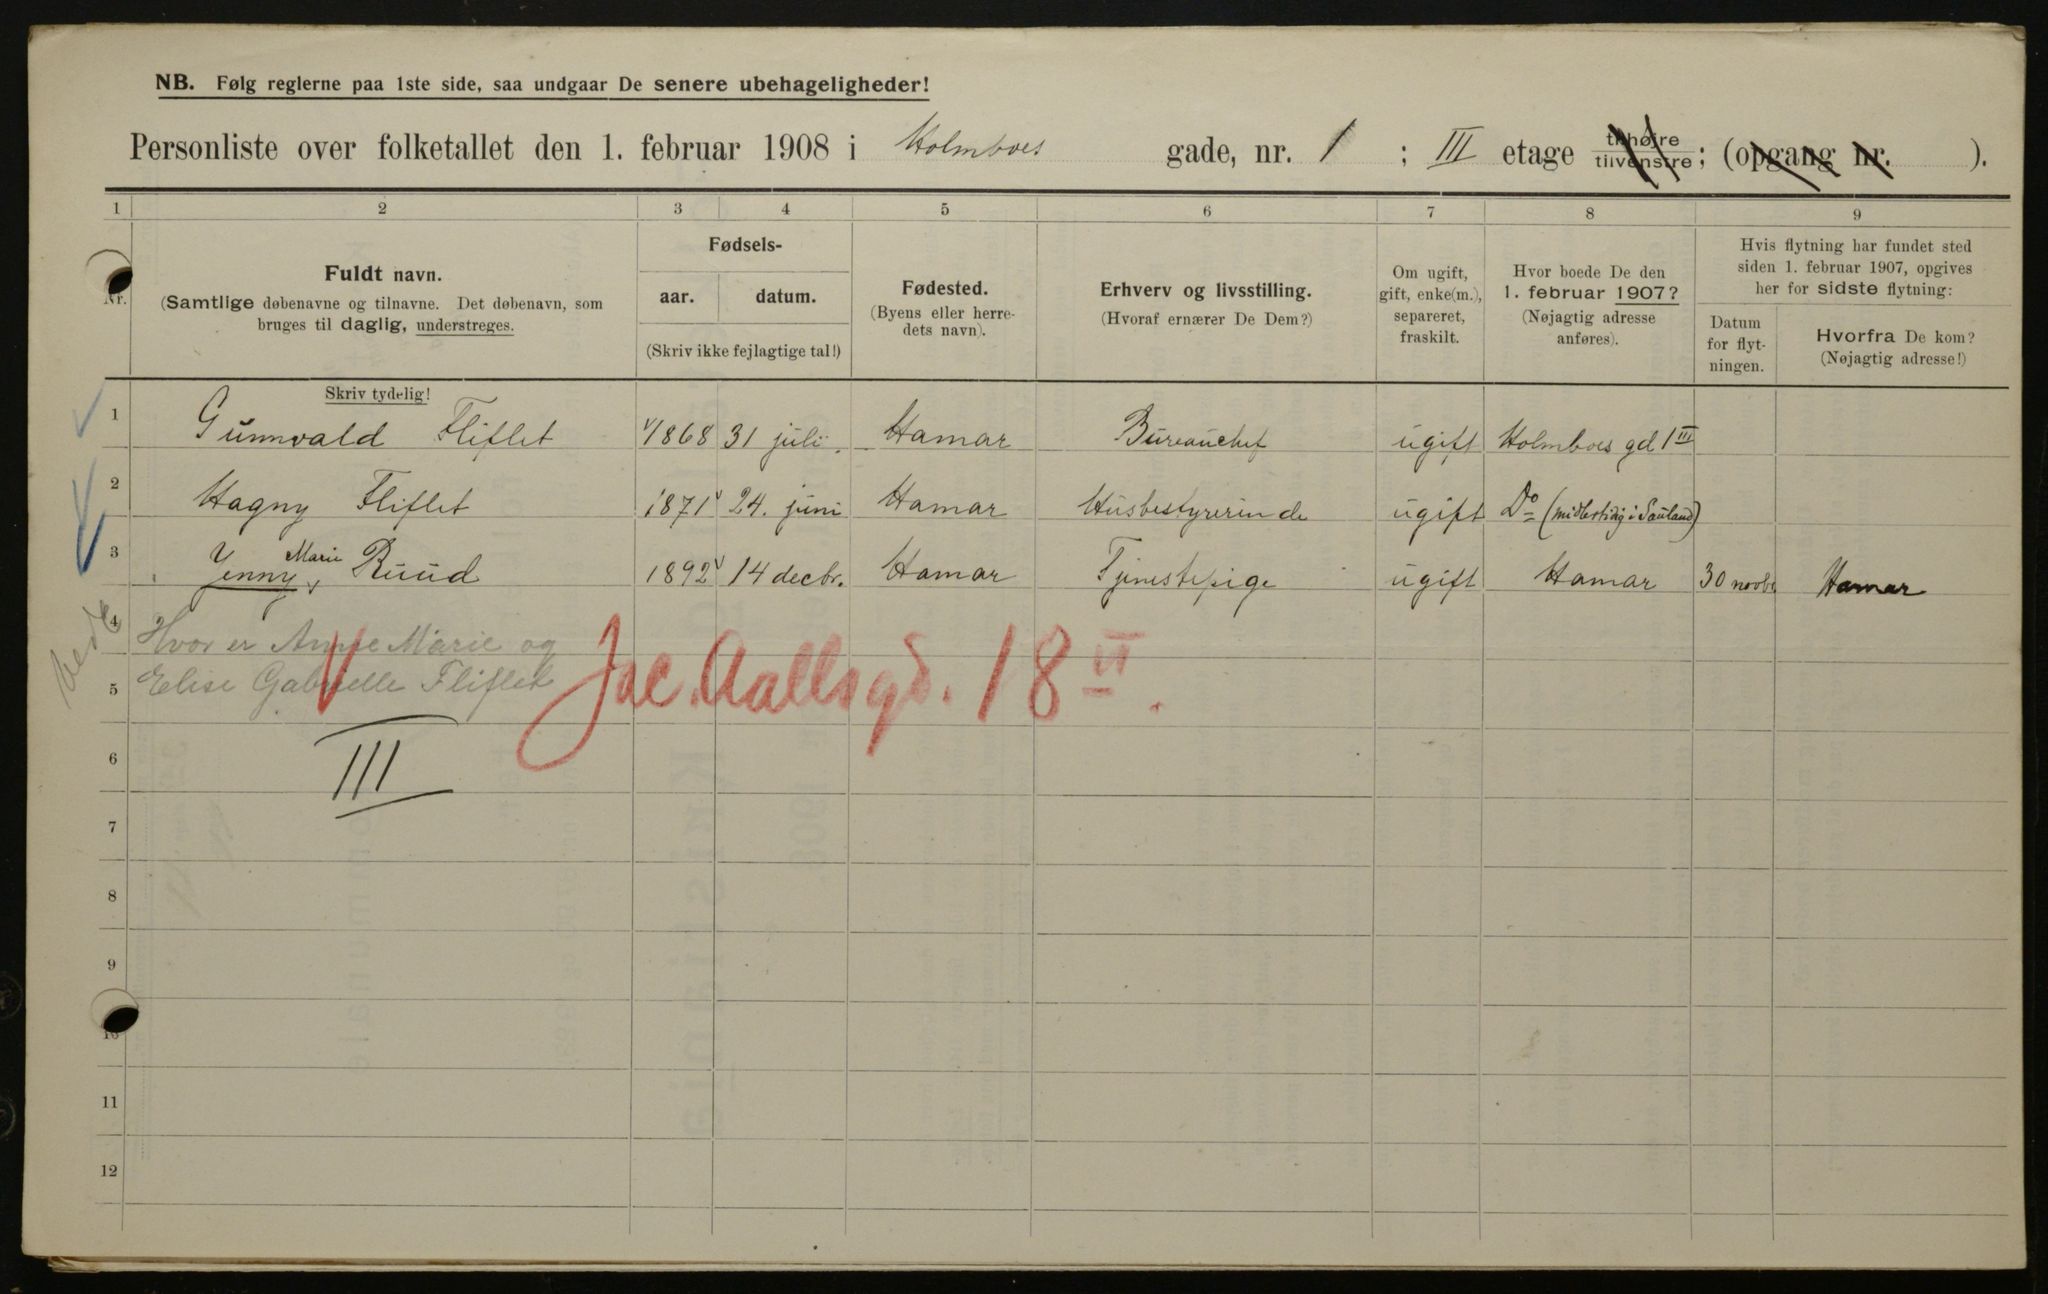 NB. Følg reglerne paa 1ste side, saa undgaar De senere ubehageligheder!
Personliste over folketallet den 1. februar 1908 i Holmboes gade, nr. 1 ; III etage tilhøjre tilvenstre ; (opgang nr. ).
1 2 3 4 5 6 7 8 9
Nr.
Fuldt navn.
(Samtlige døbenavne og tilnavne. Det døbenavn, som
bruges til daglig, understreges.
Skriv tydelig!
Fødsels-
aar. datum.
(Skriv ikke fejlagtige tal!)
Fødested.
(Byens eller herre-
dets navn).
Erhverv og livsstilling.
(Hvoraf ernærer De Dem?)
Om ugift,
gift, enke(m.),
separeret,
fraskilt.
Hvor boede De den
1. februar 1907?
(Nøjagtig adresse
anføres).
Hvis flytning har fundet sted
siden 1. februar 1907, opgives
her for sidste flytning:
Datum
for flyt-
ningen.
Hvorfra De kom?
(Nøjagtig adresse!)
1 Gunnvald Fliflet 1868 31 juli. Hamar Bureauchef ugift Holmboes gd 1 III
2 Hagny Fliflet 1871 24. juni Hamar Husbestyrerinde ugift Do (midlertidig i Sauland)
3 Jenny Marie Ruud 1892 14 decbr. Hamar Tjenestepige ugift Hamar 30 novbr Hamar
4 Hvor er Anne Marie og
5 Elise Gabrielle Fliflet
Jac. Aallsgd. 18 II.
6 III
7
8
9
10
11
12